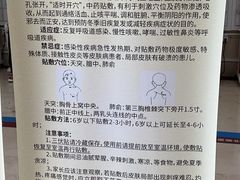 孔张开，“适时开穴”，中药贴敷，有利于刺激穴位及药物渗透吸
收，从而起到通络活血，止咳平喘，调和脏腑，平衡阴阳的作用，使
邪去而正安，达到防治冬季旧疾复发或减轻疾病症状的目的。
适应症：反复呼吸道感染、慢性咳嗽、哮喘、过敏性鼻炎等呼
吸道疾病。
禁忌症：感染性疾病急性发热期、对贴敷药物极度敏感、特
殊体质、接触性皮炎等皮肤病患者、局部皮肤有破溃的患儿。
贴敷穴位：天突、膻中、肺俞
天突：胸骨上窝中央。 肺俞：第三胸椎棘突下旁开1.5寸。
膻中：前正中线上，两乳头连线的中点。
贴敷方法：6岁以下贴敷2-3小时，6岁上可延长至4-6小
时）
注意事项：
1、三伏贴请冷藏保存，使用前提前恢复室温，以软化贴敷
恢复至常温再行贴敷。
2、贴敷期间忌油腻荤腥、辛辣刺激、寒凉、等食物，避免夏季
贪凉。
3、家长应该注意观察，若贴敷期间局部皮肤有